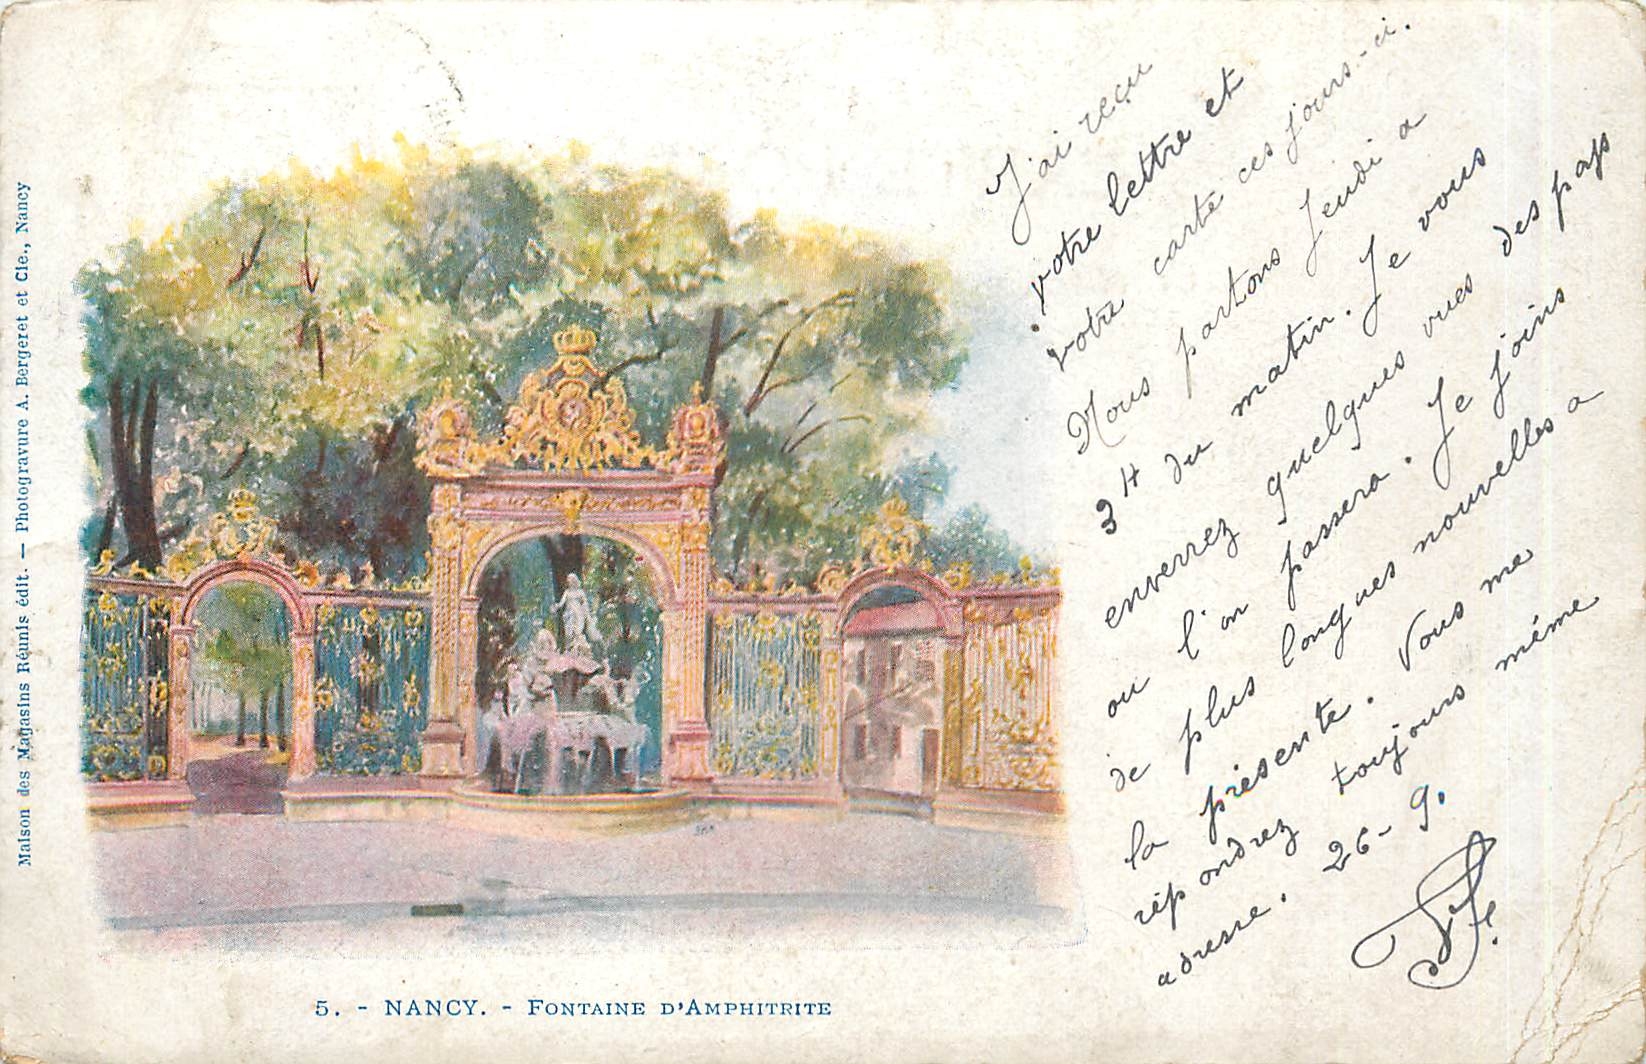 Maison des Magasins Réunis édit. — Photogravure A. Bergeret et Cie., Nancy
J'ai reçu
votre lettre et
votre carte ces jours-ci.
Nous partons Jeudi a
3H du matin. Je vous
enverrez quelques vues des pays
ou l'on passera. Je joins
de plus longues nouvelles a
la présente. Vous me
répondrez toujours même
adresse. 26-9.
5. - NANCY. - FONTAINE D'AMPHITRITE